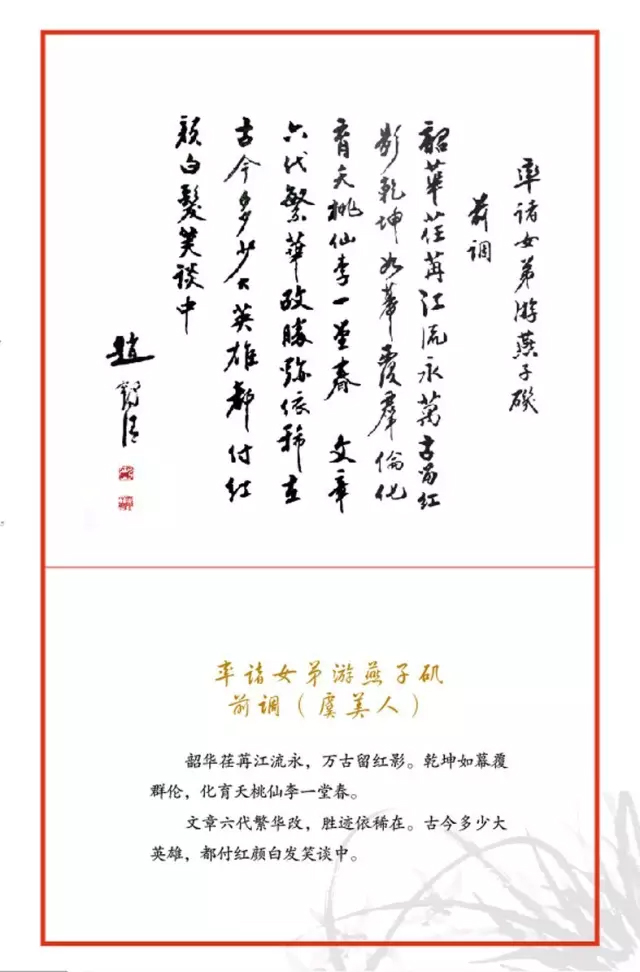 率諸女弟游燕子磯
前调
韶華荏苒江流永萬古留红
影乾坤如幕覆羣倫化
育天桃仙李一堂春 文章
六代繁華改勝跡依稀在
古今多少大英雄都付红
颜白髮笑談中
趙
率诸女弟游燕子矶
前调（虞美人）
韶华荏苒江流永，万古留红影。乾坤如幕覆
群伦，化育天桃仙李一堂春。
文章六代繁华改，胜迹依稀在。古今多少大
英雄，都付红颜白发笑谈中。